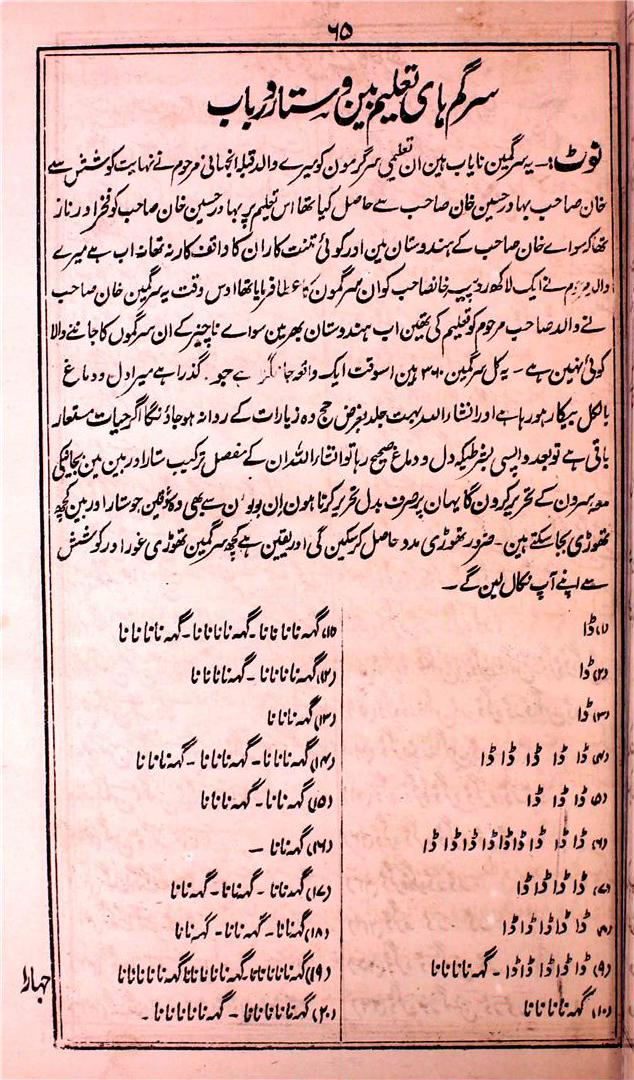 ۶۵
سرگم ہای تعلیم بین و ستار و رباب
نوٹ:- یہ سرگمین نایاب ہین ان تعلیمی سرگمون کو میرے والد قبلہ انجہانی مرحوم نے نہایت کوشش سے
خان صاحب بہادر حسین خان صاحب سے حاصل کیا تھا اس تعلیم پر بہادر حسین خان صاحب کو فخر اور ناز
تھا کہ سواے خان صاحب کے ہندوستان مین اور کوئی تنت کار ان کا واقف کار نہ تھا نہ اب ہے میرے
والد مرحوم نے ایک لاکھ روپیہ خانصاحب کو ان سرگمون کا عطا فرمایا تھا اوس وقت یہ سرگمین خان صاحب
نے والد صاحب مرحوم کو تعلیم کی تھین اب ہندوستان بھر مین سواے ناچیز کے ان سرگمون کا جاننے والا
کوئی نہین ہے - یہ کل سرگمین ۳۶۰ ہین اسوقت ایک واقعہ جانگزا ہے جو گذرا ہے میرا دل و دماغ
بالکل بیکار ہو رہا ہے اور انشاء اللہ بہت جلد بغرض حج وہ زیارات کے روانہ ہو جاؤنگا اگر حیات مستعار
باقی ہے تو بعد واپسی بشرطیکہ دل و دماغ صحیح رہا تو انشاء اللہ ان کے مفصل ترکیب ستار اور بین مین بجانیکی
معہ سرون کے تحریر کرون گا یہان پر صرف بدل تحریر کرتا ہون ان بولون سے بھی وہ شوقین جو ستار اور بین کچھ
تھوڑی بجا سکتے ہین - ضرور تھوڑی مدد حاصل کر سکین گی اور یقین ہے کچھ سرگمین تھوڑی غور اور کوشش
سے اپنے آپ نکال لین گے -
(۱) ڈا
(۲) ڈا
(۳) ڈا
(۴) ڈا ڈا ڈا ڈا ڈا
(۵) ڈا ڈا ڈا
(۶) ڈا ڈا ڈا ڈا ڈا ڈا ڈا ڈا
(۷) ڈا ڈا ڈا ڈا
(۸) ڈا ڈا ڈا ڈا ڈا
(۹) ڈا ڈا ڈا ڈا ڈا - گہہ نا نا نا نا
(۱۰) گہہ نا نا نا نا
(۱۱) گہہ نا نا نا نا - گہہ نا نا نا نا - گہہ نا نا نا نا
(۱۲) گہہ نا نا نا نا - گہہ نا نا نا نا
(۱۳) گہہ نا نا نا
(۱۴) گہہ نا نا نا - گہہ نا نا نا - گہہ نا نا نا
(۱۵) گہہ نا نا نا - گہہ نا نا نا
(۱۶) گہہ نا نا -
(۱۷) گہہ نا نا - گہہ نا نا - گہہ نا نا
(۱۸) گہہ نا نا - گہہ نا نا - گہہ نا نا
(۱۹) گہہ نا نا نا نا نا - گہہ نا نا نا نا نا گہہ نا نا نا نا نا
(۲۰) گہہ نا نا نا نا نا - گہہ نا نا نا نا نا -